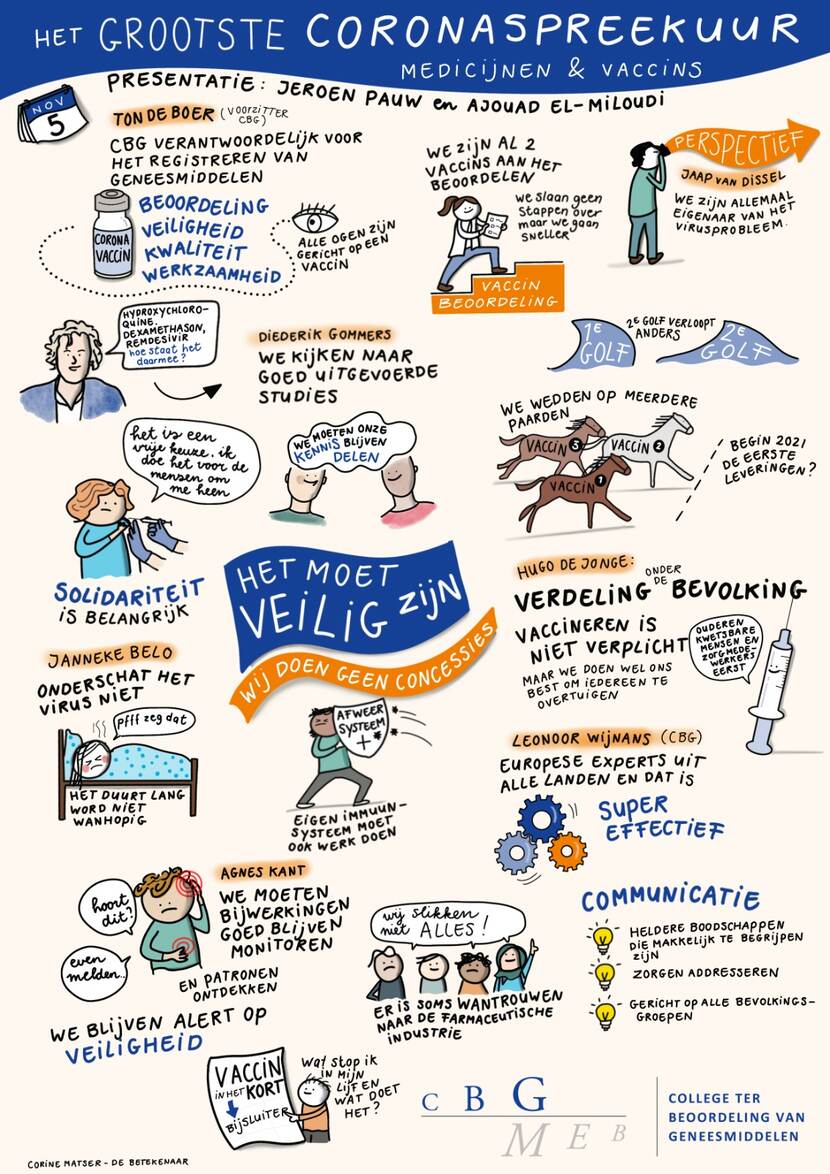 HET GROOTSTE CORONASPREEKUUR
MEDICIJNEN & VACCINS
PRESENTATIE: JEROEN PAUW en AJOUAD EL-MILOUDI
NOV
5
TON DE BOER (VOORZITTER
CBG)
CBG VERANTWOORDELIJK VOOR
HET REGISTREREN VAN
GENEESMIDDELEN
CORONA
VACCIN
BEOORDELING
VEILIGHEID
KWALITEIT
WERKZAAMHEID
ALLE OGEN ZIJN
GERICHT OP EEN
VACCIN
WE ZIJN AL 2
VACCINS AAN HET
BEOORDELEN
we slaan geen
stappen over
maar we gaan
sneller
VACCIN
BEOORDELING
PERSPECTIEF
JAAP VAN DISSEL
WE ZIJN ALLEMAAL
EIGENAAR VAN HET
VIRUSPROBLEEM.
HYDROXYCHLORO-
QUINE,
DEXAMETHASON,
REMDESIVIR
hoe staat het
daarmee?
DIEDERIK GOMMERS
WE KIJKEN NAAR
GOED UITGEVOERDE
STUDIES
1E
GOLF
2E GOLF VERLOOPT
ANDERS
2E
GOLF
WE WEDDEN OP MEERDERE
PAARDEN
VACCIN 3
VACCIN 2
VACCIN 1
BEGIN 2021
DE EERSTE
LEVERINGEN?
het is een
vrije keuze, ik
doe het voor de
mensen om
me heen
WE MOETEN ONZE
KENNIS BLIJVEN
DELEN
SOLIDARITEIT
IS BELANGRIJK
HET MOET
VEILIG ZIJN
WIJ DOEN GEEN CONCESSIES
HUGO DE JONGE:
VERDELING ONDER DE BEVOLKING
VACCINEREN IS
NIET VERPLICHT
MAAR WE DOEN WEL ONS
BEST OM IEDEREEN TE
OVERTUIGEN
OUDEREN
KWETSBARE
MENSEN EN
ZORGMEDE-
WERKERS
EERST
JANNEKE BELO
ONDERSCHAT HET
VIRUS NIET
pfff zeg dat
HET DUURT LANG
WORD NIET
WANHOPIG
AFWEER
SYSTEEM
+
EIGEN IMMUUN-
SYSTEEM MOET
OOK WERK DOEN
LEONOOR WIJNANS (CBG)
EUROPESE EXPERTS UIT
ALLE LANDEN EN DAT IS
SUPER
EFFECTIEF
AGNES KANT
WE MOETEN
BIJWERKINGEN
GOED BLIJVEN
MONITOREN
EN PATRONEN
ONTDEKKEN
hoort
dit?
even
melden..
WE BLIJVEN ALERT OP
VEILIGHEID
wij slikken
niet ALLES!
ER IS SOMS WANTROUWEN
NAAR DE FARMACEUTISCHE
INDUSTRIE
COMMUNICATIE
HELDERE BOODSCHAPPEN
DIE MAKKELIJK TE BEGRIJPEN
ZIJN
ZORGEN ADDRESSEREN
GERICHT OP ALLE BEVOLKINGS-
GROEPEN
VACCIN
IN HET KORT
BIJSLUITER
Wat stop ik
IN MIJN
LIJF EN
WAT DOET
HET?
C B G
M E B
COLLEGE TER
BEOORDELING VAN
GENEESMIDDELEN
CORINE MATSER - DE BETEKENAAR